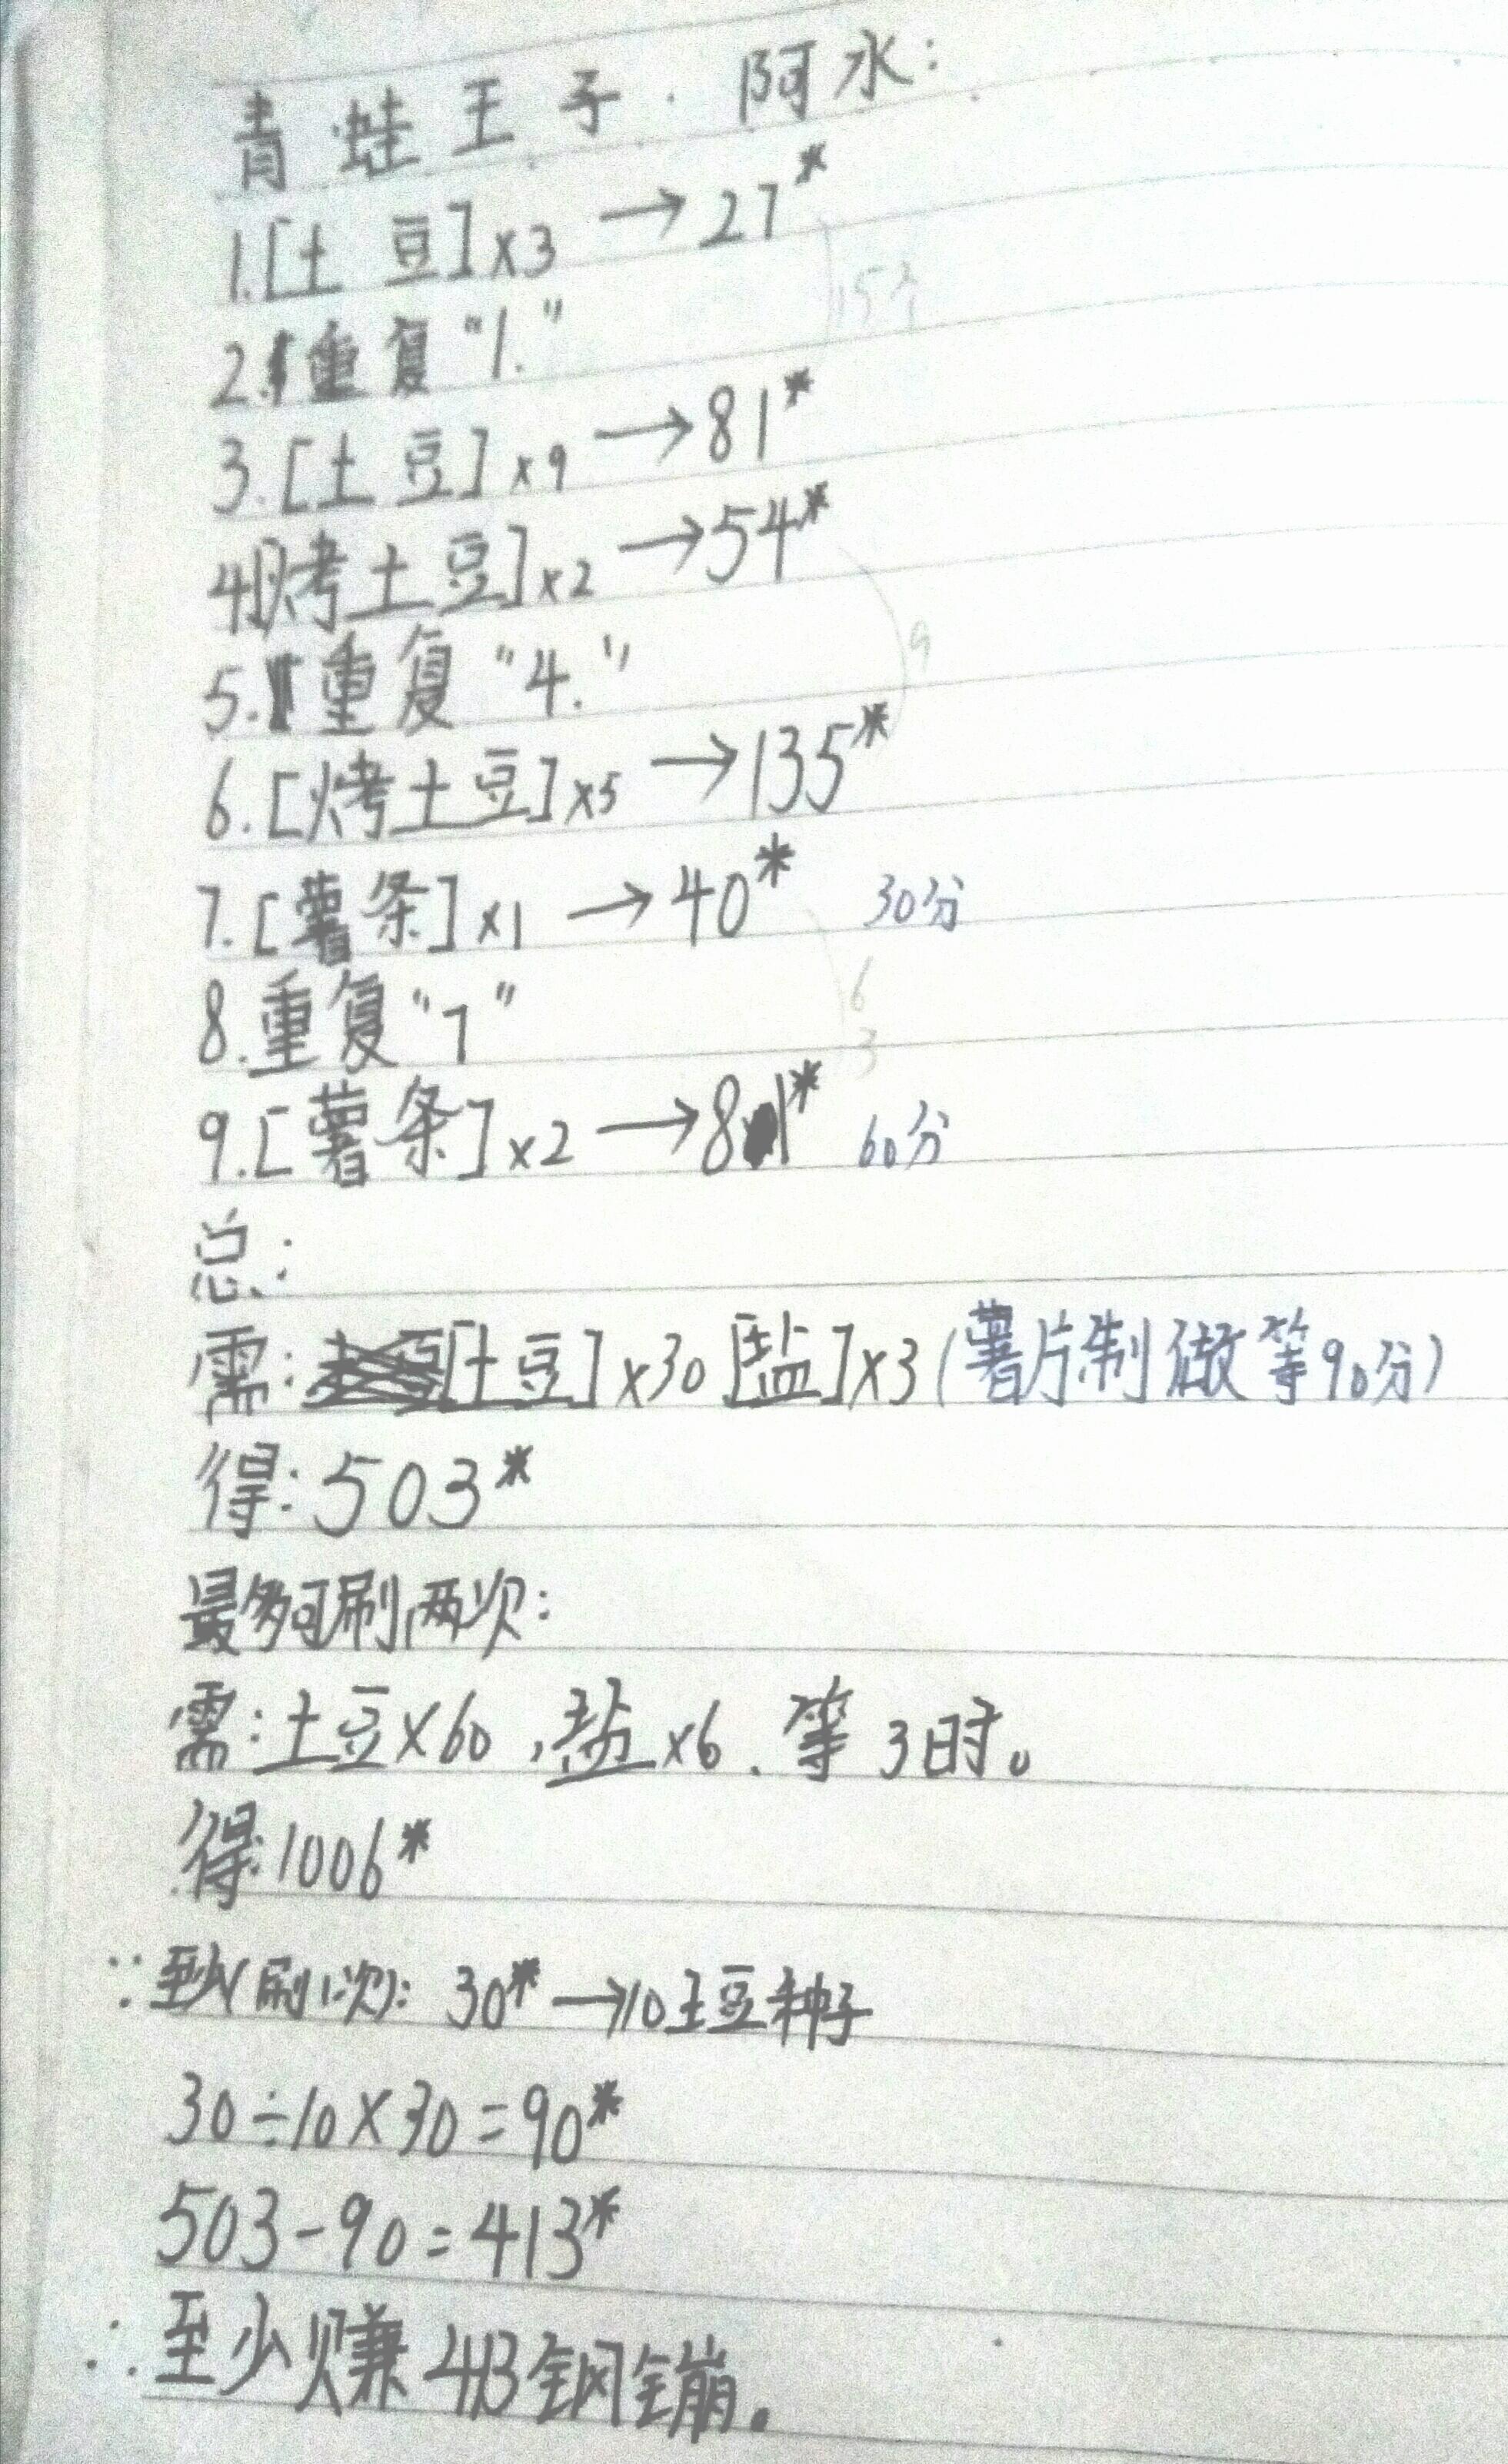 青蛙王子·阿水:
1.[土豆]x3→27*
15个
2.重复"1."
3.[土豆]x9→81*
4.[烤土豆]x2→54*
5.重复"4."
9
6.[烤土豆]x5→135*
7.[薯条]x1→40* 30分
8.重复"7"
6
3
9.[薯条]x2→81* 60分
总:
需:[土豆]x30[盐]x3(薯片制做等90分)
得:503*
最多可刷两次:
需:土豆x60,盐x6.等3时。
得:1006*
∵至少(刷1次):30*→10土豆种子
30÷10x30=90*
503-90=413*
∴至少赚413钢镚。